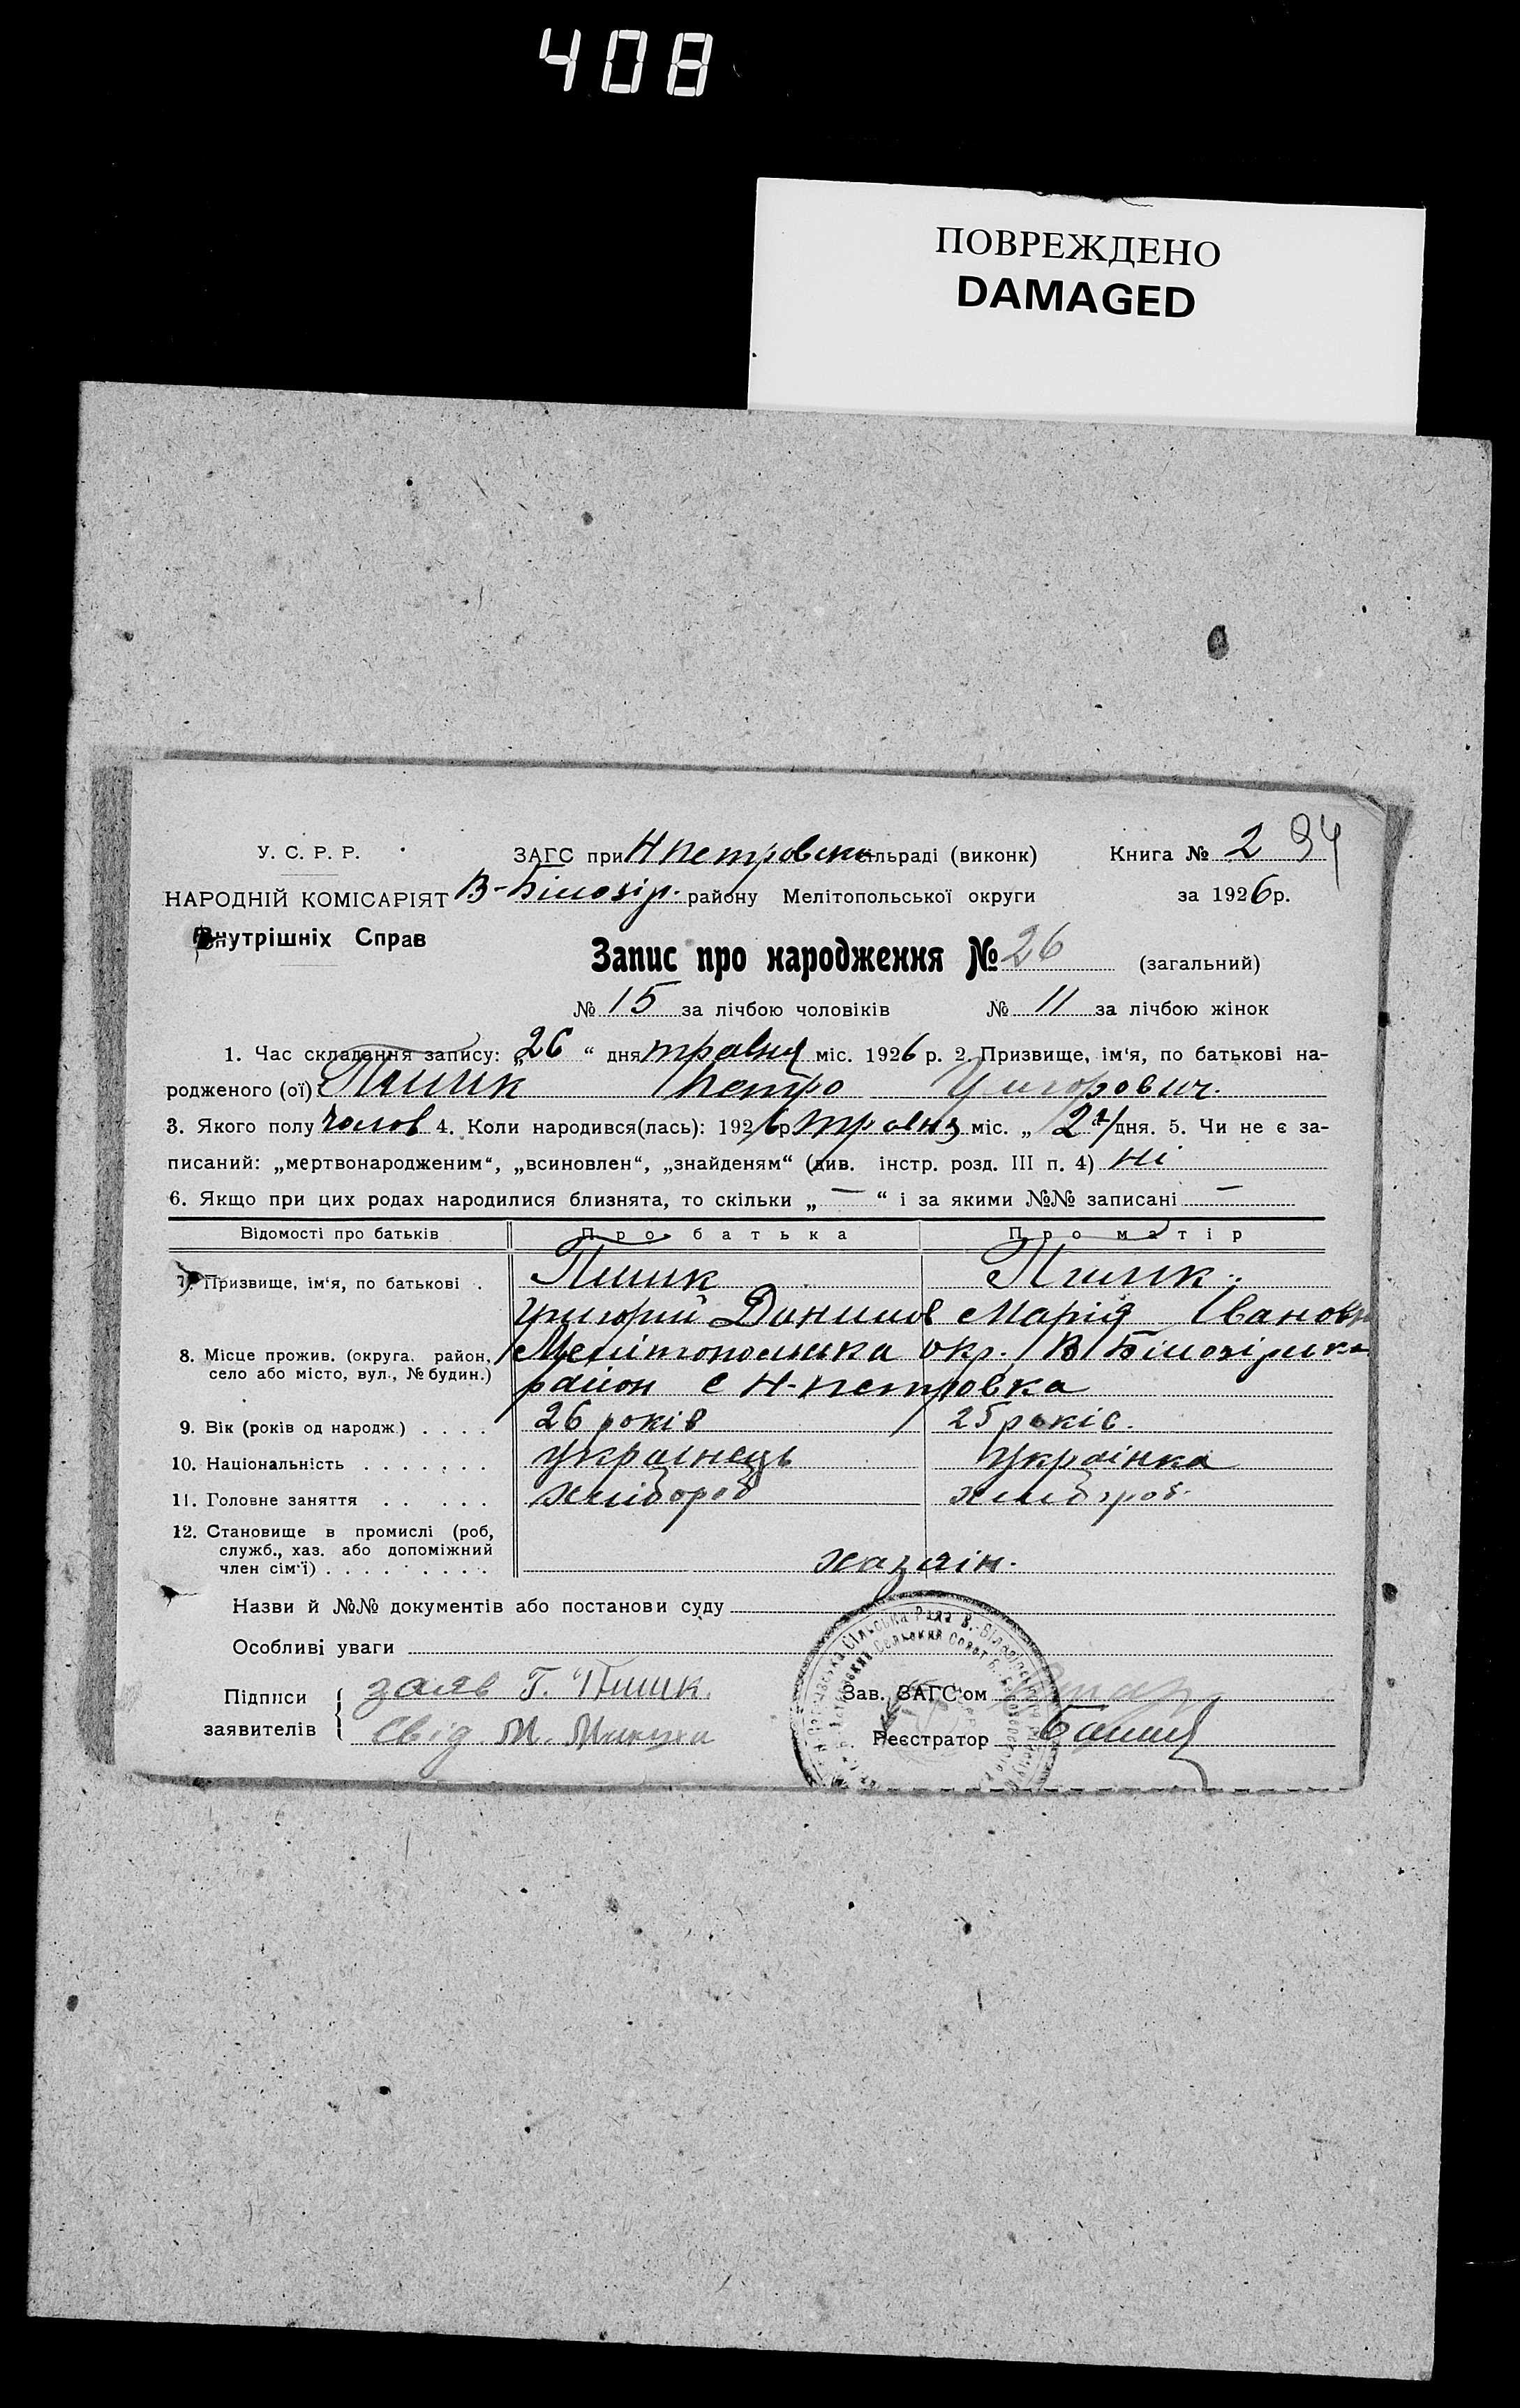 408
ПОВРЕЖДЕНО
DAMAGED
У. С. Р. Р. ЗАГС при Н петровськ сільраді (виконк) Книга № 2 94
НАРОДНІЙ КОМІСАРІЯТ В-Білозір. району Мелітопольської округи за 1926 р.
Внутрішніх Справ
Запис про народження № 26 (загальний)
№ 15 за лічбою чоловіків № 11 за лічбою жінок
1. Час складання запису: „26“ дня травня міс. 1926 р. 2. Призвище, ім‘я, по батькові на-
родженого (ої) Петро Григорович.
3. Якого полу чолов 4. Коли народився(лась): 1926 р травня міс. „ дня. 5. Чи не є за-
писаний: „мертвонародженим“, „всиновлен“, „знайденям“ (див. інстр. розд. III п. 4) ні
6. Якщо при цих родах народилися близнята, то скільки „ — “ і за якими №№ записані —
Відомості про батьків Про батька Про матір
7. Призвище, ім‘я, по батькові .
Григорий Данилов Марія Іванов
8. Місце прожив. (округа. район, Мелітопольська окр. В Білозірська
село або місто, вул., № будин.) район с Н-петровка
9. Вік (років од народж.) . . . . 26 років 25 років.
10. Національність . . . . . . . українець українка
11. Головне заняття . . . . . хлібороб хлібороб.
12. Становище в промислі (роб,
служб., хаз. або допоміжний
член сім‘ї) . . . . . . . . . хазяін.
Назви й №№ документів або постанови суду
Особливі уваги
Підписи заяв Г.
заявителів Свід М.
Зав. ЗАГС‘ом
Реєстратор